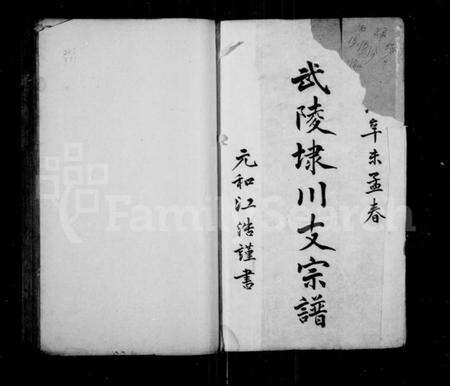 辛未孟春
武陵埭川支宗譜
元和江浩謹書
FamilySearch